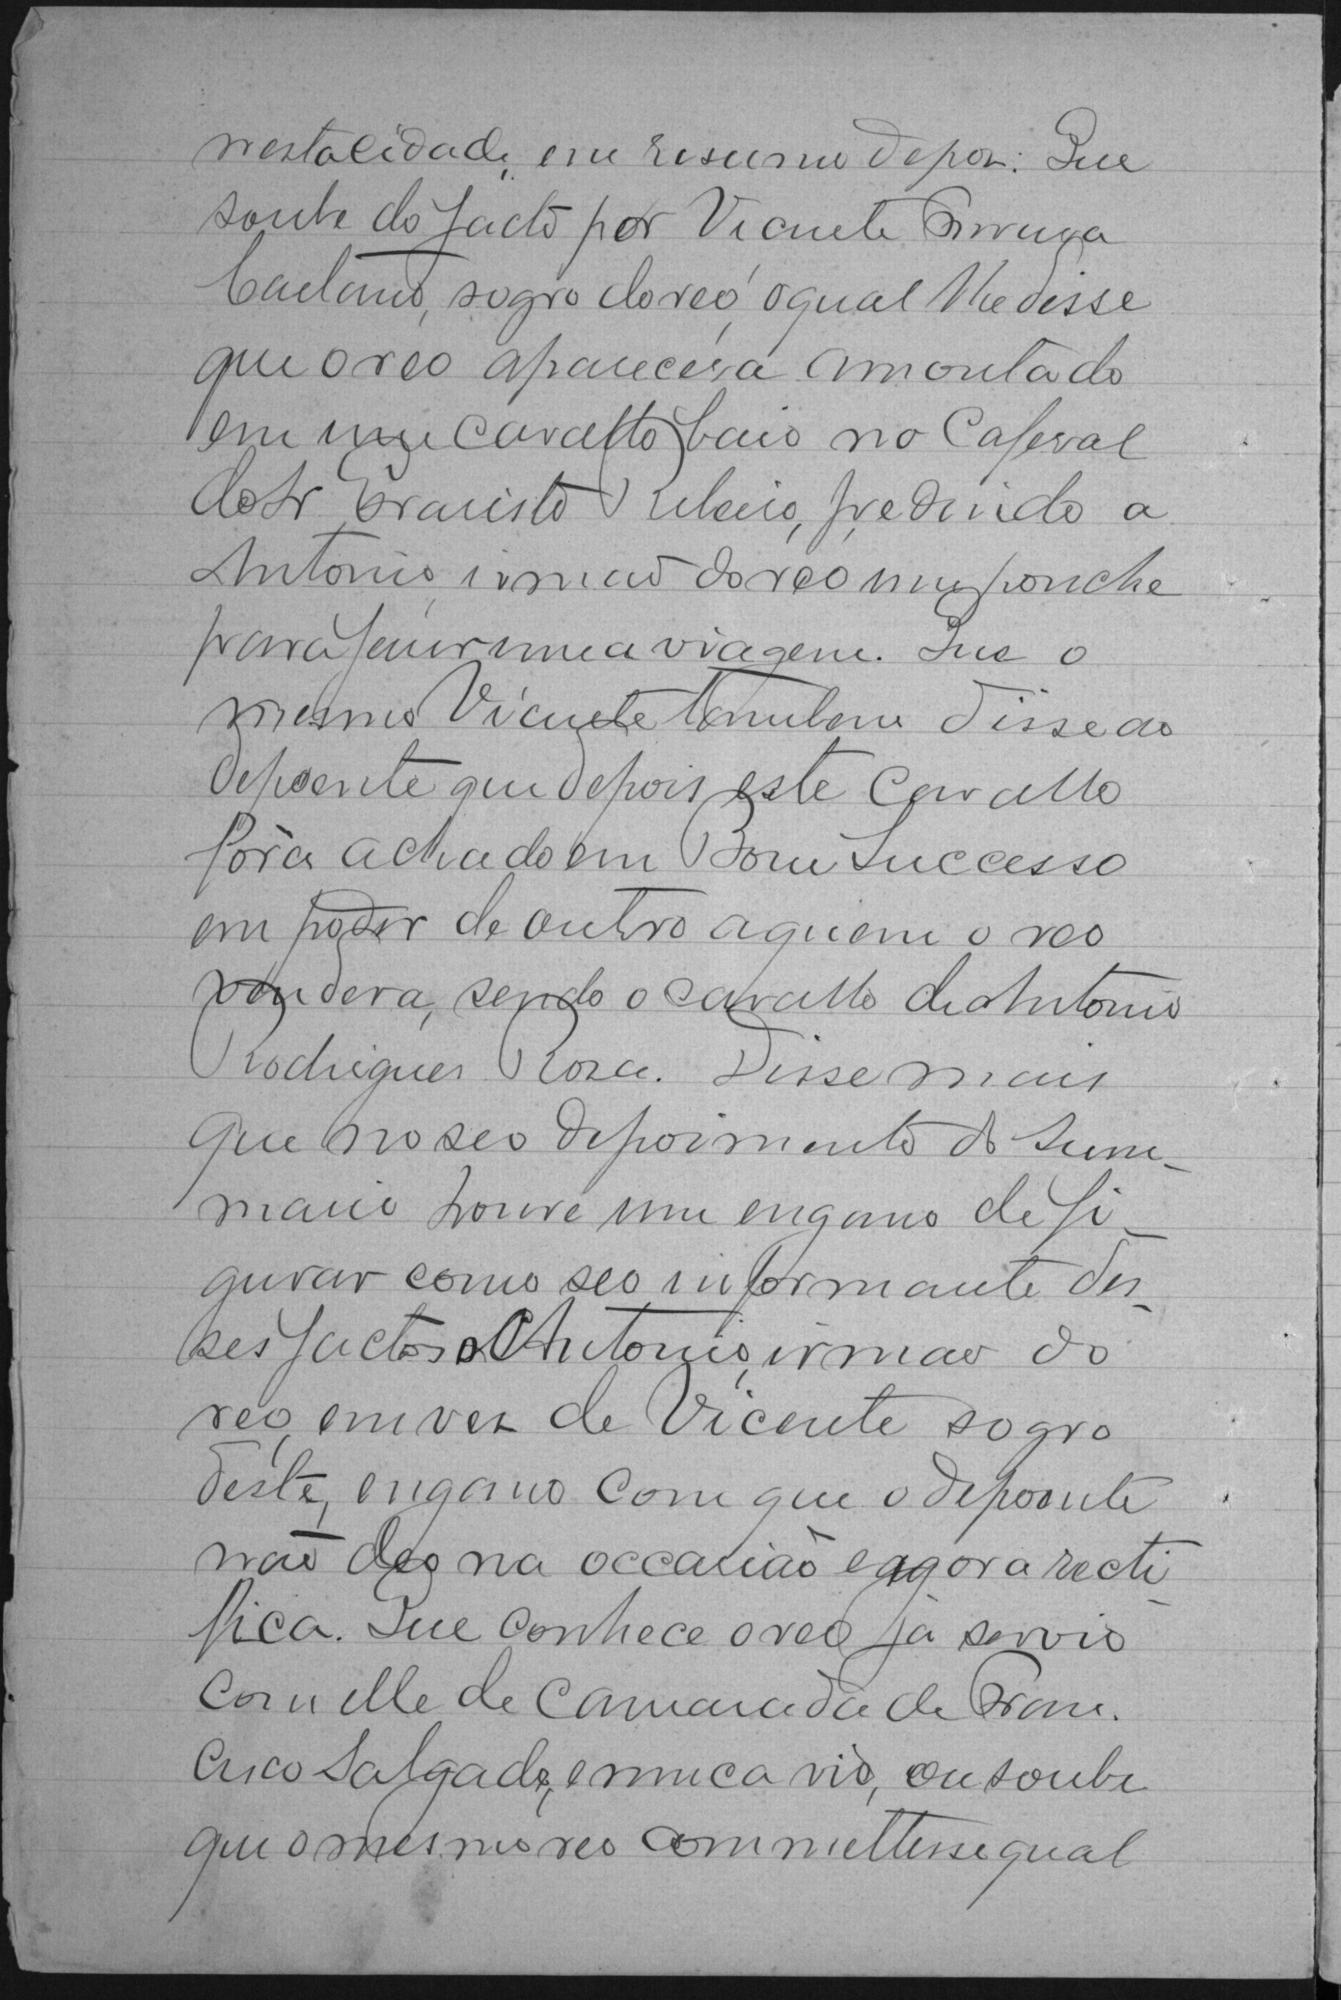 nestalidade, em resumo depoz: Que
soube do facto por Vicente Arruda
Caetano, sogro do reo, o qual lhe disse
que o reo aparecera amontado
em um cavallo baio no Cafesal
do Sr Evaristo Ribeiro, pedindo a
Antonio, irmaõ do reo um ponche
para fazer uma viagem. Que o
mesmo Vicente tambem disse ao
depoente que depois este cavallo
fôra achado em Bom Successo
em poder de outro a quem o reo
vendera, sendo o cavallo de Antonio
Rodrigues Rosa. Disse mais
que no seo depoimento do sum-
mario houve um engano de fi-
gurar como seo informante des-
ses factos o Antonio, irmao do
reo, em vez de Vicente sogro
deste, engano com que o depoente
não deo na occasião e agora recti-
fica. Que conhece o reo já servio
com elle de camarada de Fran-
cisco Salgado, e nunca vio, ou soube
que o mesmo reo commettesse qual